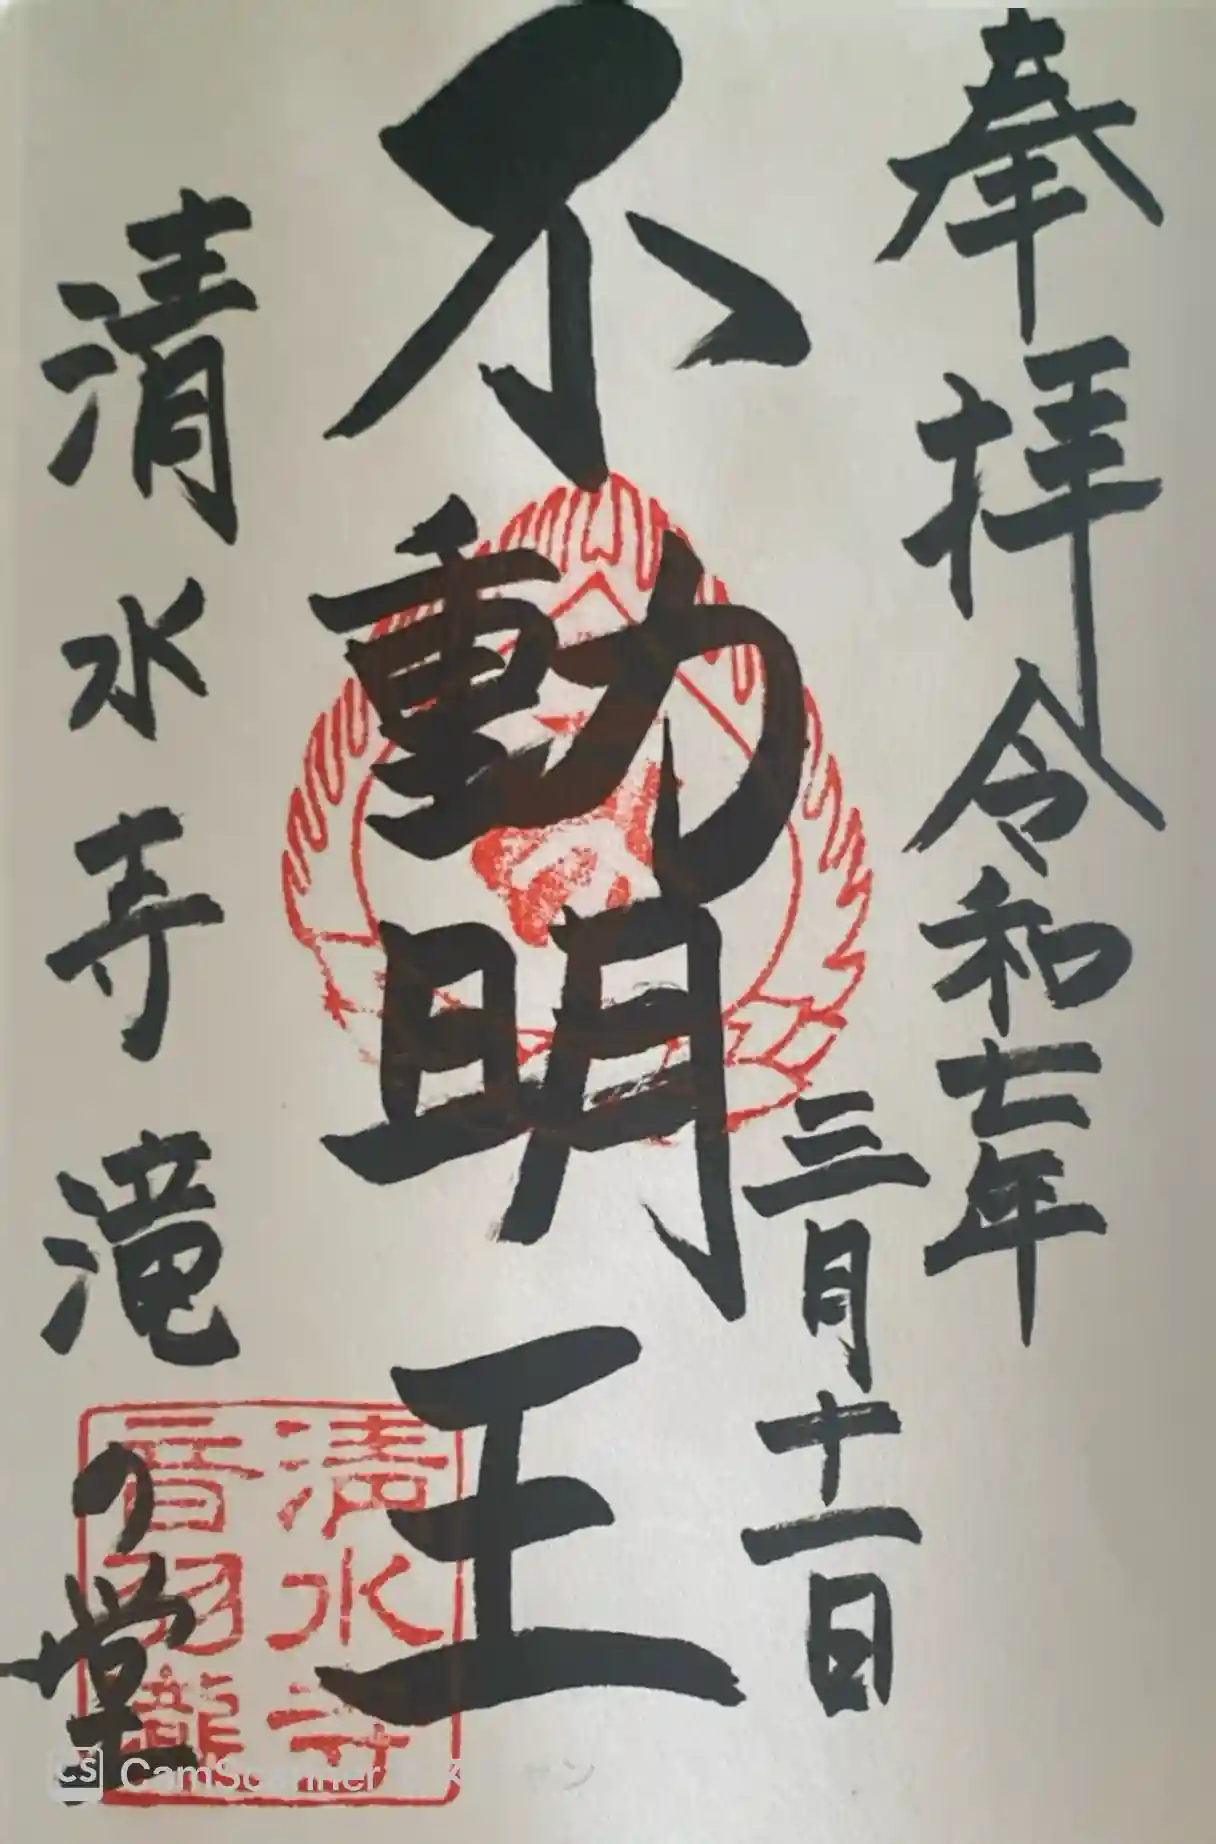 奉拝 令和七年
三月十一日
不動明王
清水寺 滝の堂
清水寺
音羽瀧
CS CamScanner